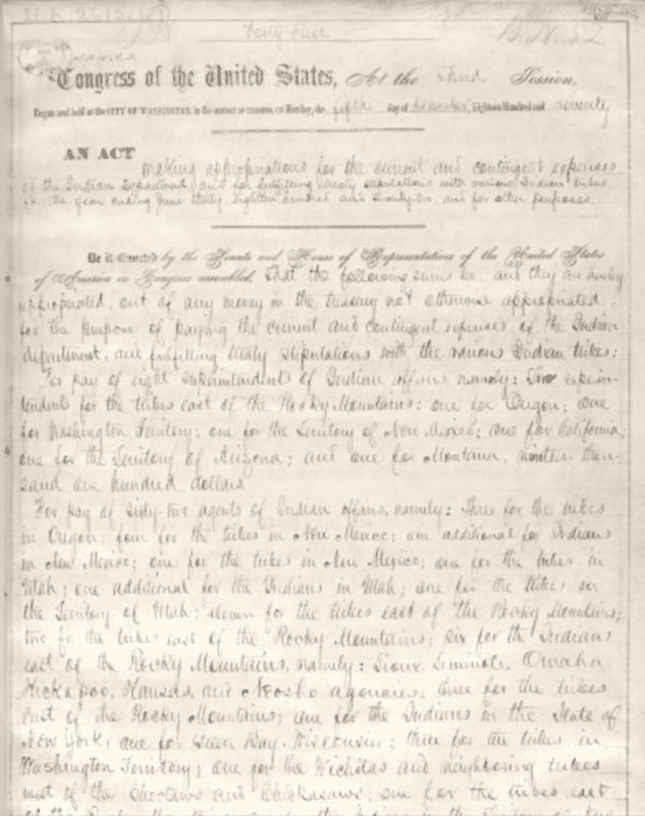 H.R. 2615
Forty first
Congress of the United States, At the Third Session,
Begun and held at the CITY OF WASHINGTON, in the District of Columbia, on Monday, the fifth day of December, Eighteen Hundred and seventy
AN ACT making appropriations for the current and contingent expenses
of the Indian Department, and for fulfilling treaty stipulations with various Indian tribes
the year ending June thirty, eighteen hundred and seventy-two, and for other purposes
Be it Enacted by the Senate and House of Representatives of the United States
of America in Congress assembled, That the following sums be, and they are hereby
appropriated, out of any money in the treasury not otherwise appropriated,
for the purpose of paying the current and contingent expenses of the Indian
department, and fulfilling treaty stipulations with the various Indian tribes:
For pay of eight superintendents of Indian affairs, namely: Two superin-
tendents for the tribes east of the Rocky Mountains; one for Oregon; one
for Washington Territory; one for the Territory of New Mexico; one for California;
one for the Territory of Arizona; and one for Montana, nineteen thou-
sand one hundred dollars
For pay of sixty-two agents of Indian affairs, namely: Three for the tribes
in Oregon; four for the tribes in New Mexico; one additional for Indians
in New Mexico; one for the tribes in New Mexico; one for the tribes in
Utah; one additional for the Indians in Utah; one for the tribes in
the Territory of Utah; eleven for the tribes east of the Rocky Mountains;
two for the tribes east of the Rocky Mountains; six for the Indians
east of the Rocky Mountains, namely: Sioux, Seminole, Omaha,
Kickapoo, Kansas, and Neosho agencies; three for the tribes
east of the Rocky Mountains; one for the Indians in the State of
New York; one for Green Bay, Wisconsin; three for the tribes in
Washington Territory; one for the Wichitas and neighboring tribes
west of the Choctaws and Chickasaws; one for the tribes east